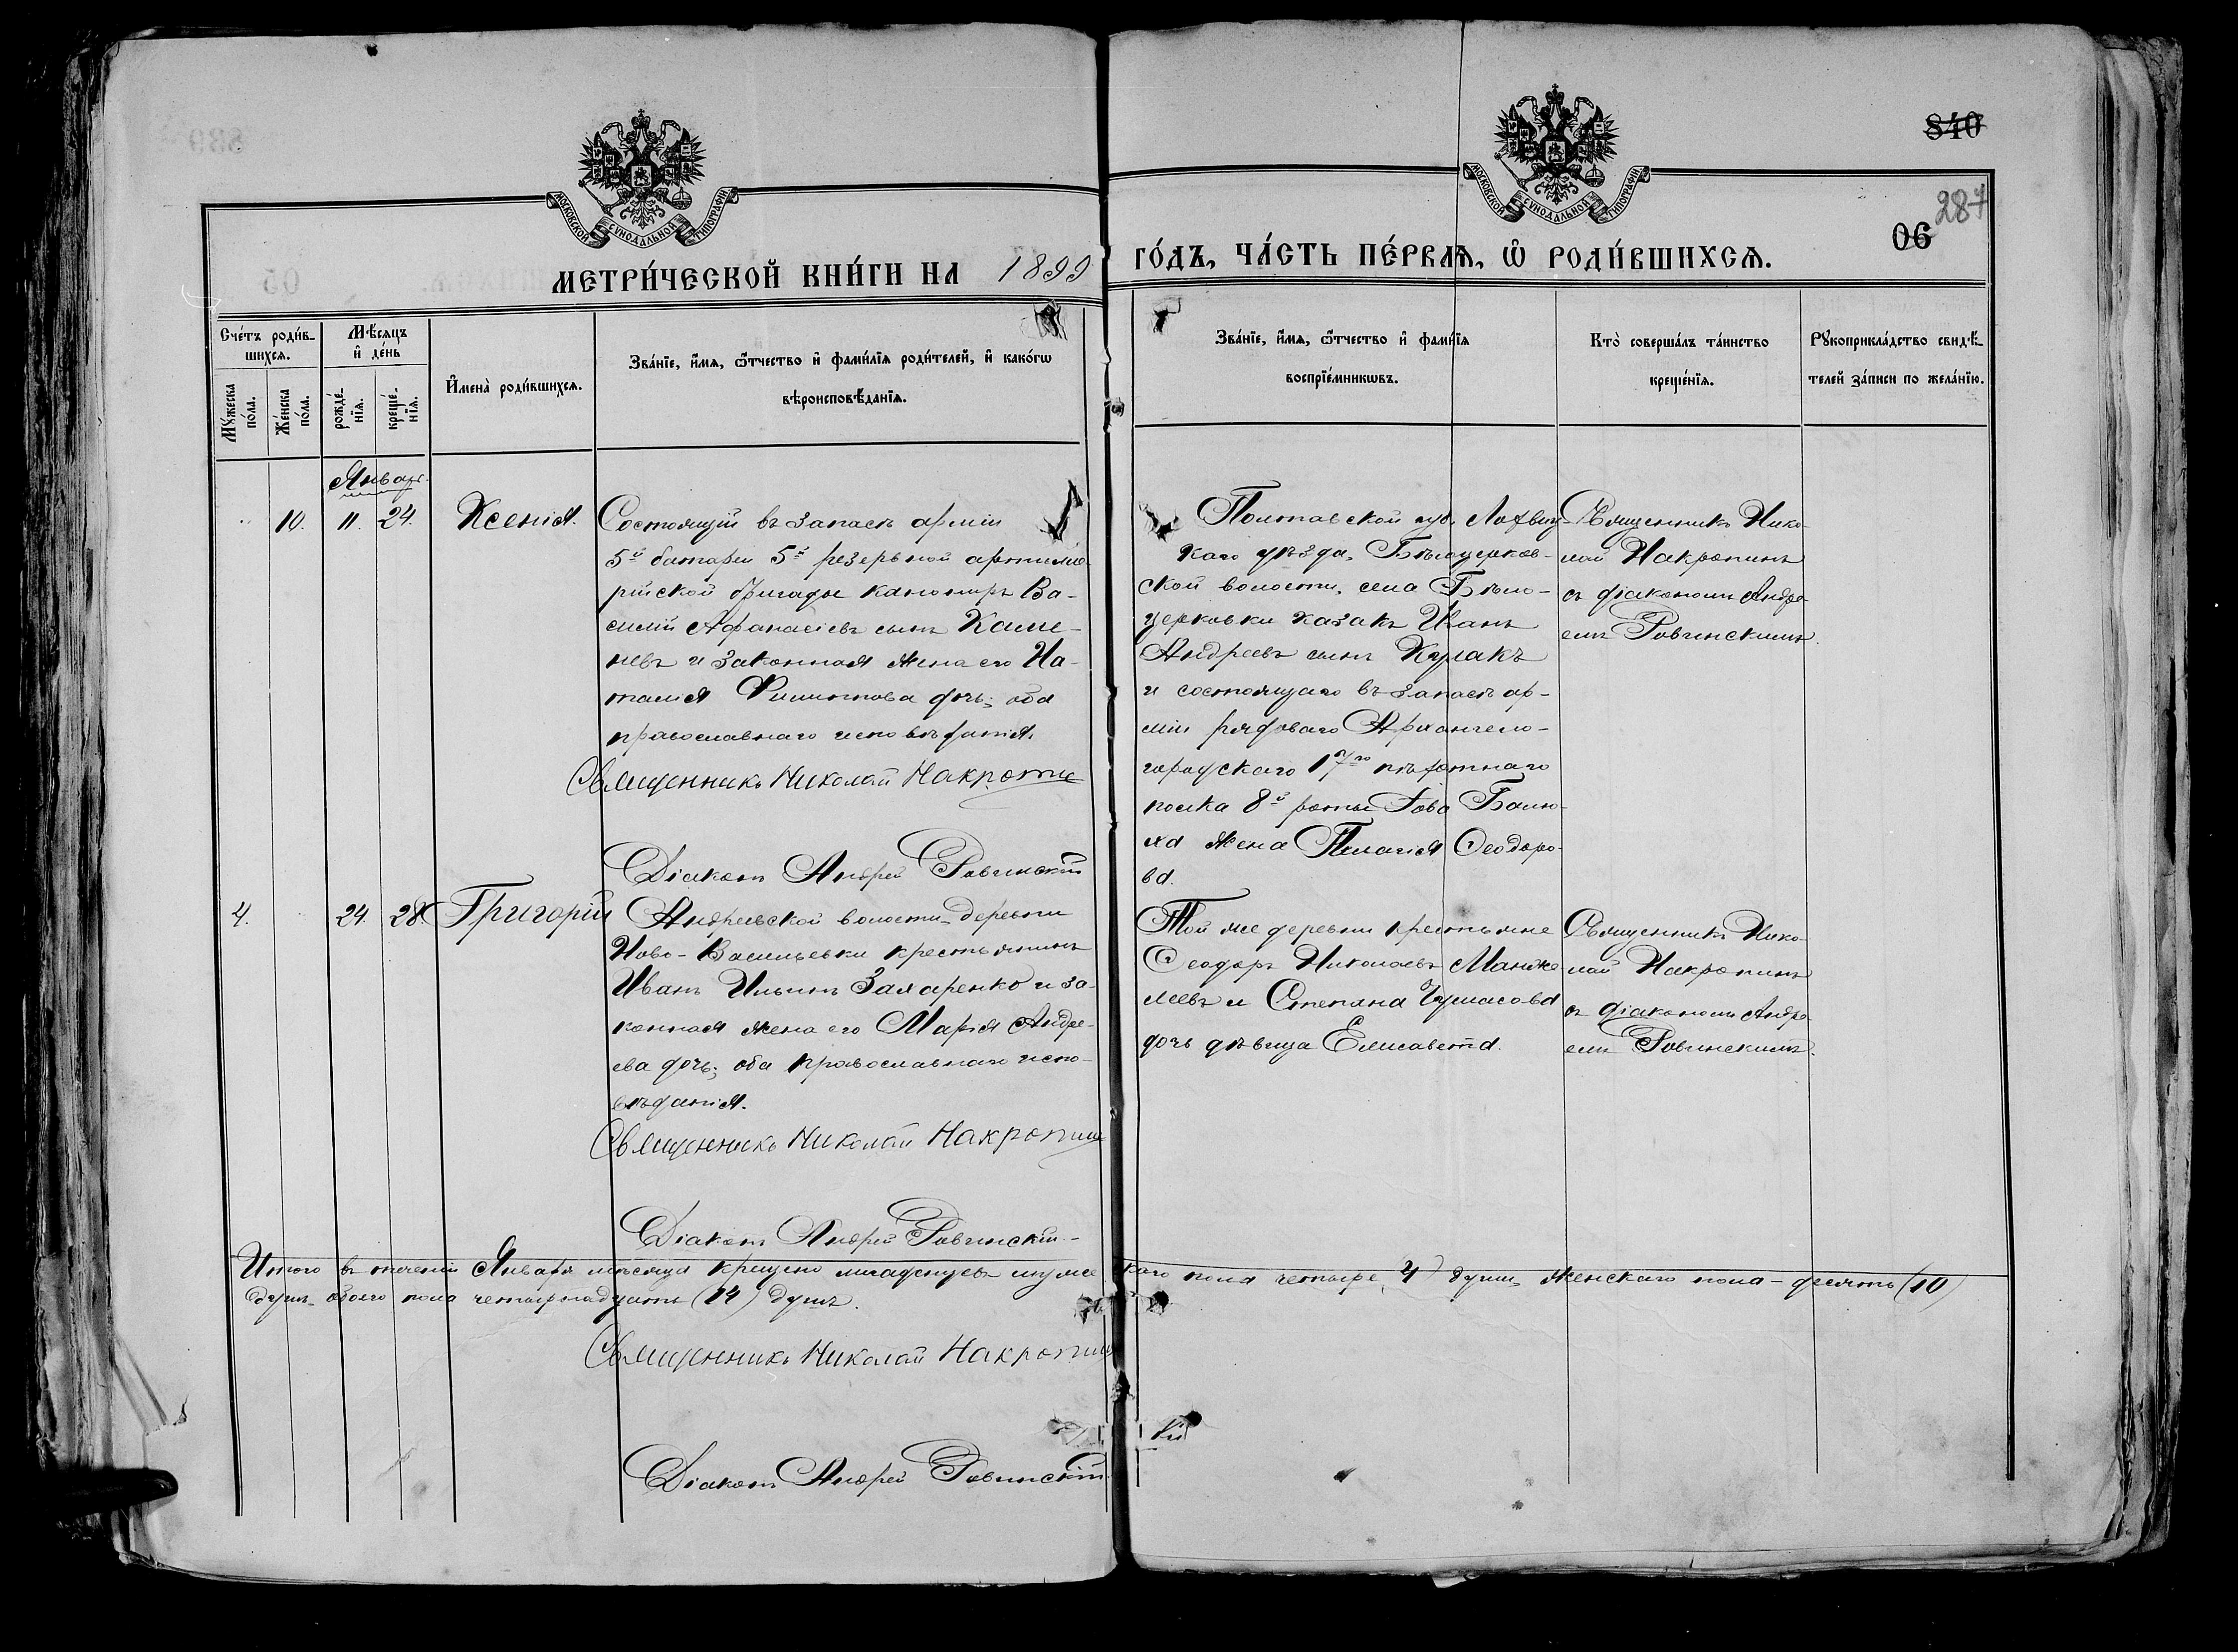 840
287
06
МОСКОВСКОЙ СѴНОДАЛЬНОЙ ТИПОГРАФІИ
МОСКОВСКОЙ СѴНОДАЛЬНОЙ ТИПОГРАФІИ
МЕТРИ́ЧЕСКОЙ КНИ́ГИ НА 1899
ГО́ДЪ, ЧА́СТЬ ПЕ́РВАѦ, Ѽ РОДИ́ВШИХСѦ.
Сче́тъ роди́в-
шихсѧ.
Мꙋ́жеска
по́ла.
Же́нска
по́ла.
Мѣ́сяцъ
и҆ де́нь
рожде́-
нїѧ.
креще́-
нїѧ.
И҆мена̀ роди́вшихсѧ.
Зва́нїе, и҆́мѧ, ѻ҆́тчество и҆ фами́лїѧ роди́телей, и҆ како́гѡ
вѣроисповѣ́данїѧ.
Зва́нїе, и҆́мѧ, ѻ҆́тчество и҆ фами́лїѧ
воспрїе́мникѡвъ.
Кто̀ соверша́лъ та́инство
креще́нїѧ.
Рꙋкоприкла́дство свидѣ́-
телей за́писи по жела́нїю.
Январь
10. 11. 24. Ксенія.
Состоящій въ запасѣ арміи
5й батареи 5й резервной артилле
рійской бригады канониръ Ва-
силій Афанасіевъ сынъ Каме-
невъ и законная жена его На-
талія Филиппова дочь; оба
православнаго исповѣданія.
Священникъ Николай Накропин
Діаконъ Андрей Ровинскій
Полтавской губ. Лохвиц-
каго уѣзда, Бѣлоцерков-
ской волости, села Бѣло-
церковки казакъ Иванъ
Андреевъ сынъ Кулакъ
и состоящаго въ запасѣ ар-
міи рядоваго Архангело-
городскаго 17го пѣхотнаго
полка 8й роты Іова
жена Пелагія Ѳеодоро-
ва.
Священникъ Нико-
лай Накропинъ
съ діакономъ Андре-
емъ Ровинскимъ.
4. 24. 28. Григорій
Андреевской волости деревни
Ново-Васильевки крестьянинъ
Иванъ Ильинъ Захаренко и за-
конная жена его Марія Андре-
ева дочь; оба православнаго испо-
вѣданія.
Священникъ Николай Накропин
Діаконъ Андрей Ровинскій
Той же деревни крестьяне
Ѳеодоръ Николаевъ Манже
леевъ и Степана
дочь дѣвица Елисавета.
Священникъ Нико-
лай Накропинъ
съ діакономъ Андре
емъ Ровинскимъ.
Итого въ теченіи Января мѣсяца крещено младенцевъ мужескаго пола четыре (4) души, женскаго пола – десять (10)
душъ, обоего пола четырнадцать (14) душъ.
Священникъ Николай Накропин
Діаконъ Андрей Ровинскій